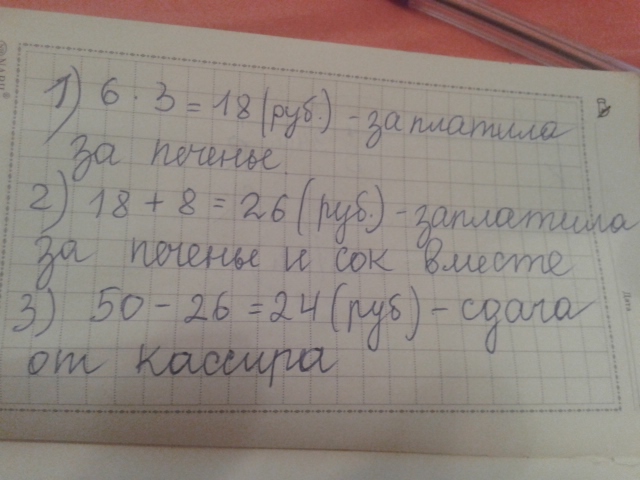 1) 6 · 3 = 18 (руб.) - заплатила
за печенье.
2) 18 + 8 = 26 (руб.) - заплатила
за печенье и сок вместе
3) 50 - 26 = 24 (руб) - сдача
от кассира